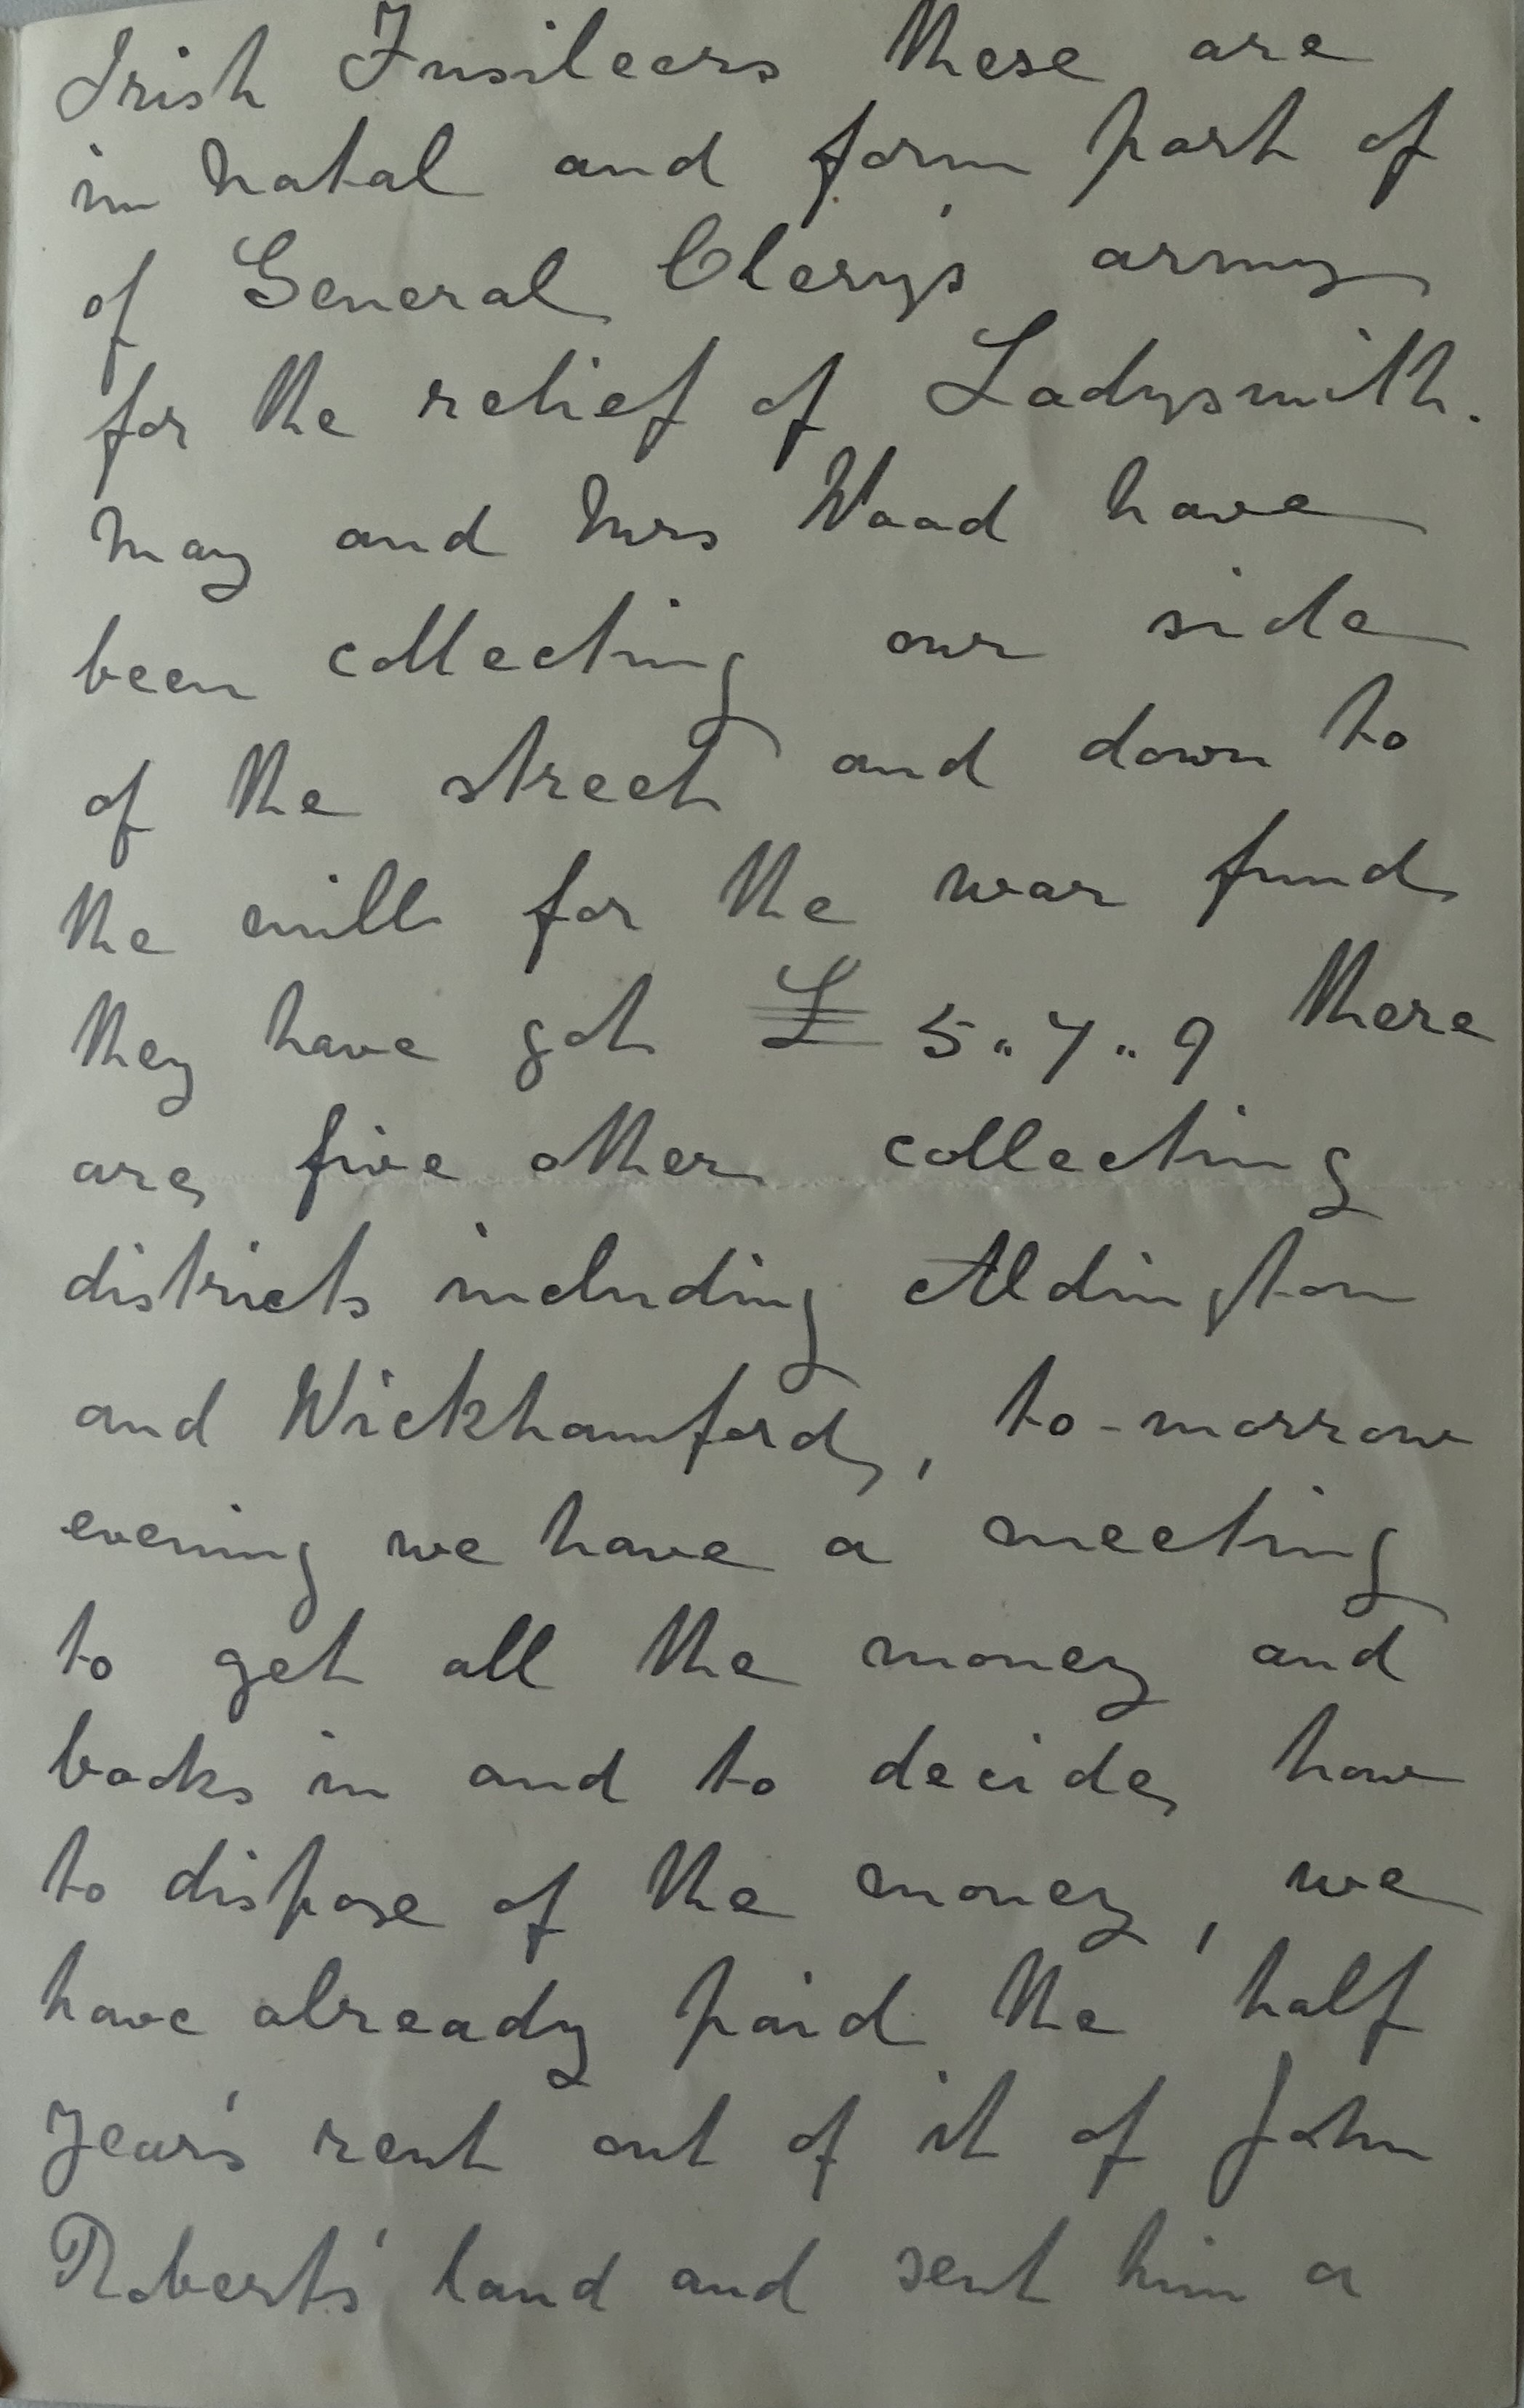 Irish Fusileers these are
in Natal and form part of
of General Clery's army
for the relief of Ladysmith.
May and Mrs Wood have
been collecting our side
of the street and down to
the mill for the war fund
they have got £ 5 " 7 " 9 there
are five other collecting
districts including Aldington
and Wickhamford, to-morrow
evening we have a meeting
to get all the money and
books in and to decide how
to dispose of the money, we
have already paid the half
year's rent out of it of John
Roberts' land and sent him a